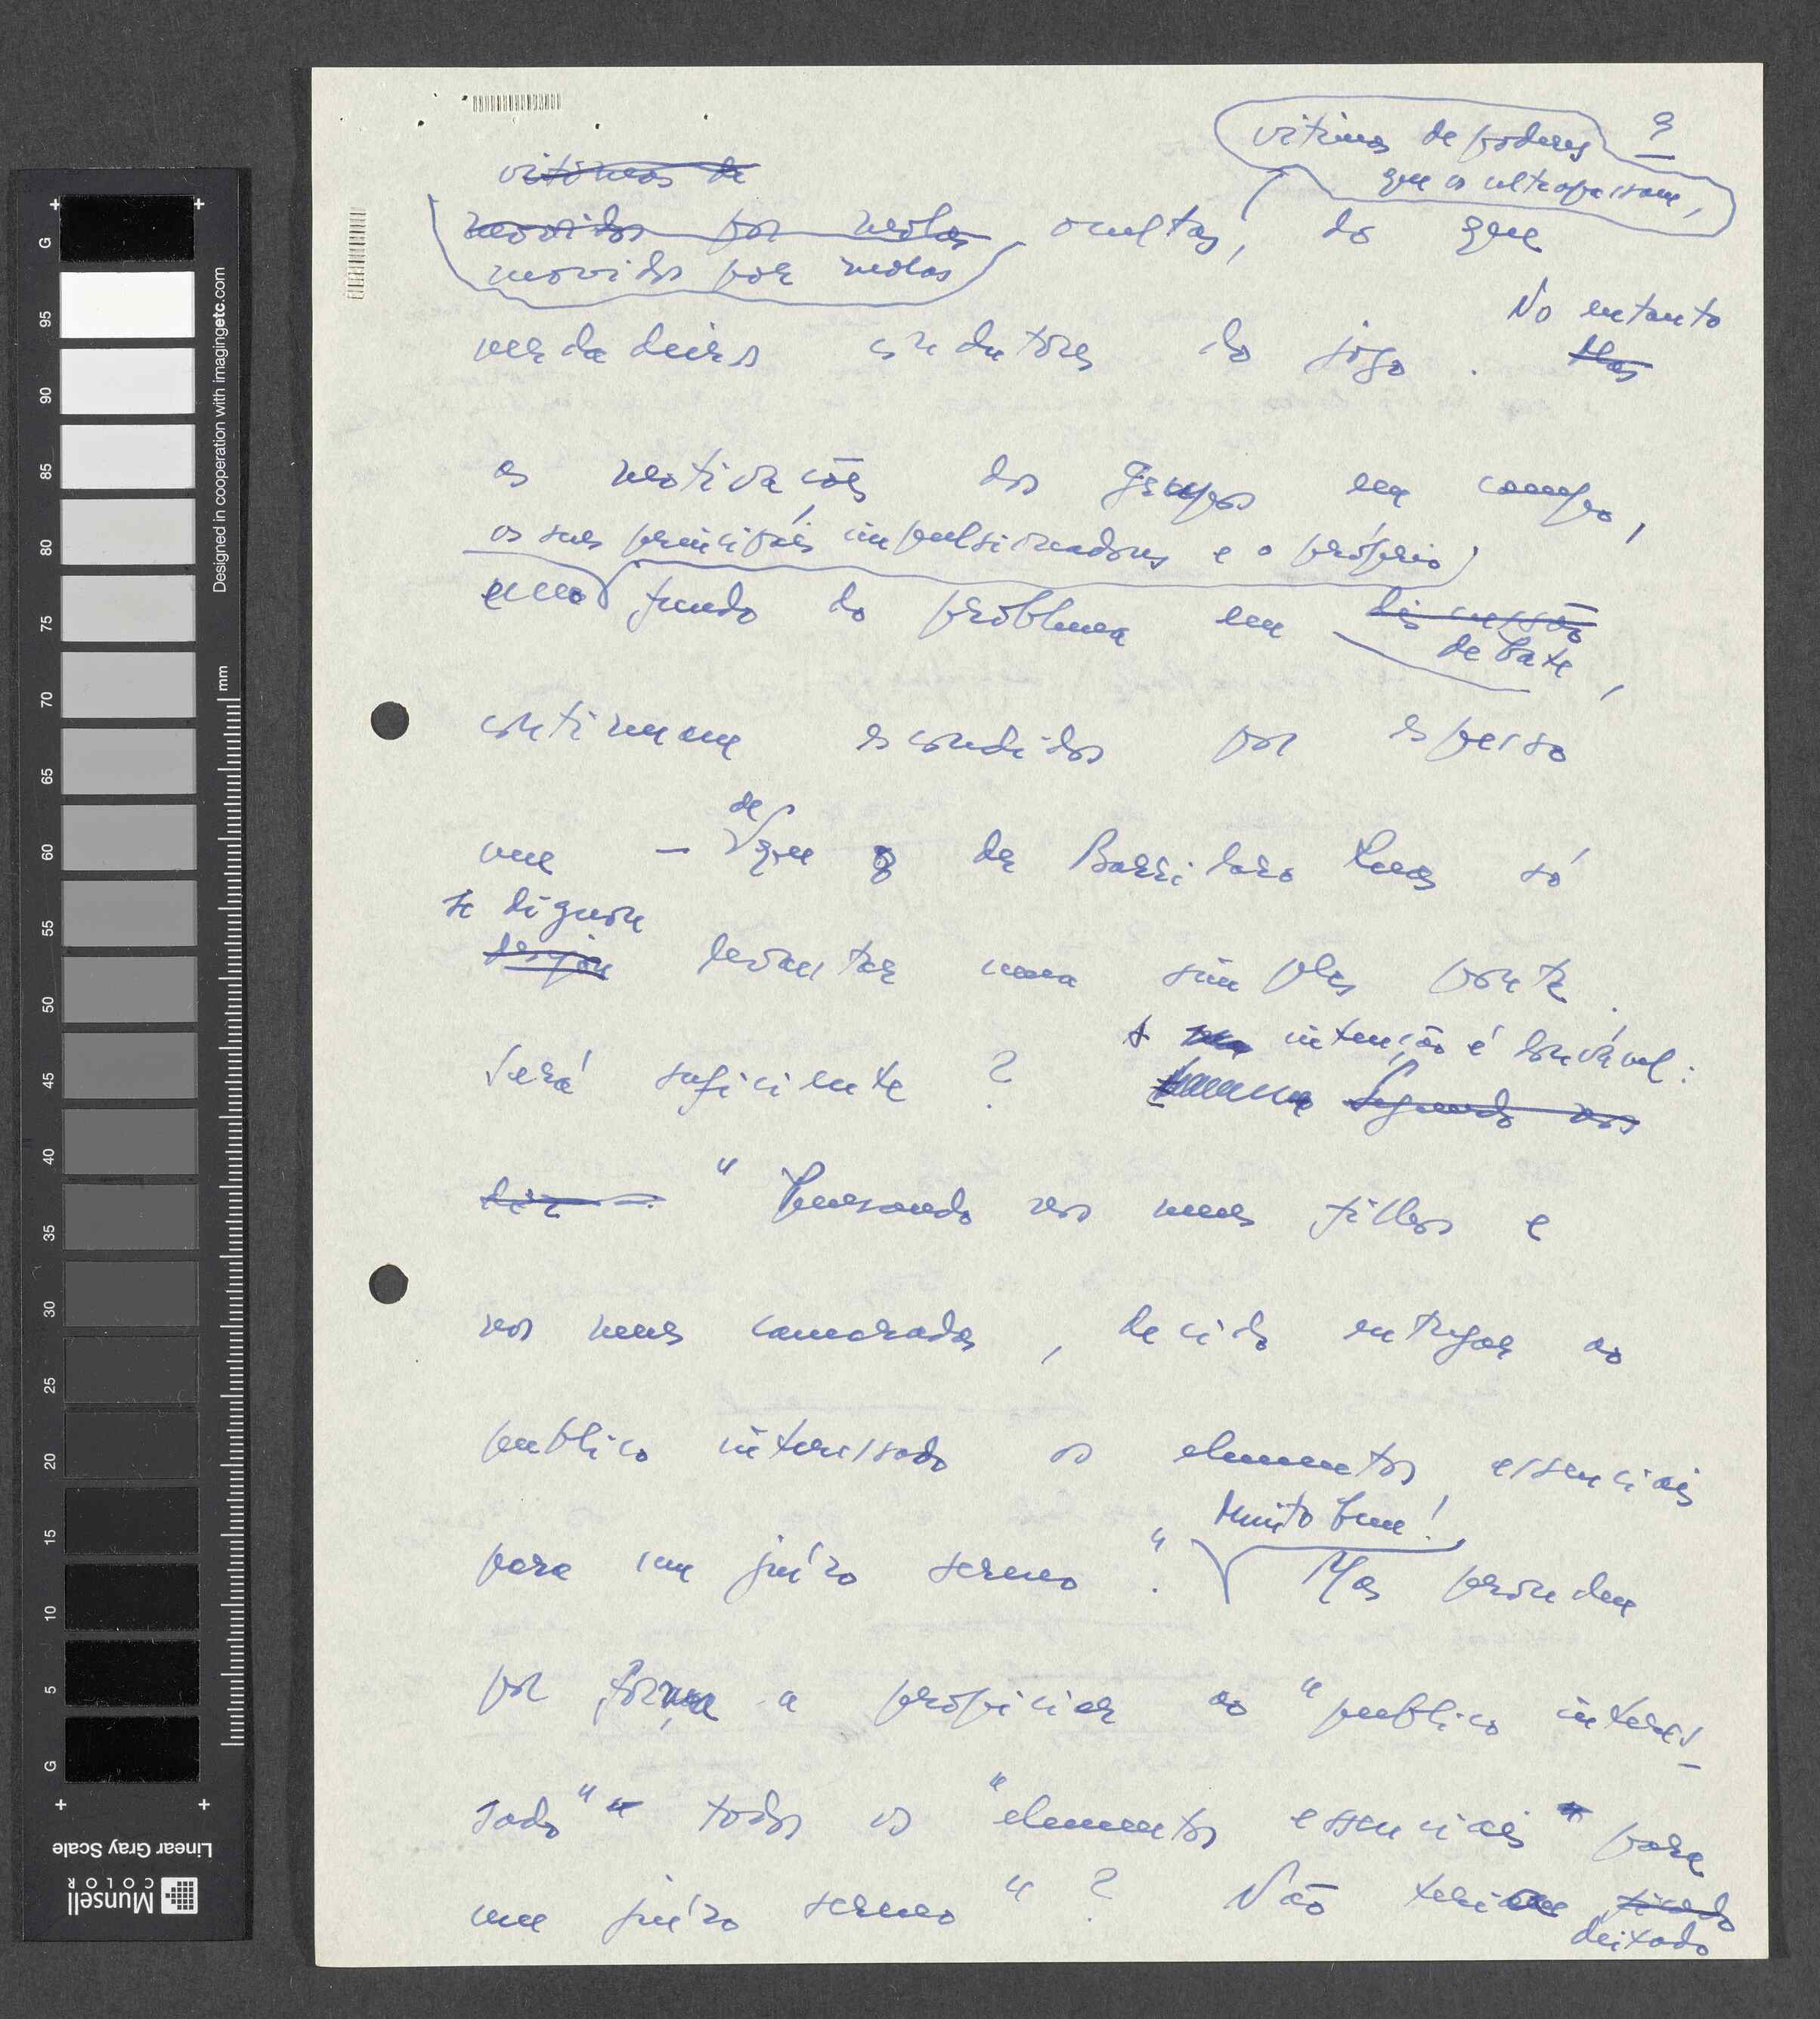 9
vítimas de poderes
que os ultrapassam,
vítimas de
movidos por molas ocultas, do que
movidos por molas
No entanto
verdadeiros condutores do jogo. Mas
as motivações dos grupos em campo,
os seus principais impulsionadores e o próprio
fundo do problema em discussão
debate,
continuam escondidos por espesso
de
véu – que de Barrilaro Ruas só
se dignou
desejou levantar uma simples ponta.
A intenção é louvável:
Será suficiente? Segundo nos
diz "Pensando nos meus filhos e
nos meus camaradas, decido entregar ao
publico interessado os elementos essenciais
Muito bem!
para um juízo sereno". Mas
por forma a propiciar ao "publico interes-
sado" todos os "elementos essenciais para
um juízo sereno"? Não teriam ficado
deixado
G
95
90
85
80
75
70
65
60
55
50
45
40
35
30
25
20
15
10
5
G
mm
Designed in cooperation with imagingetc.com
Linear Gray Scale
Munsell
COLOR